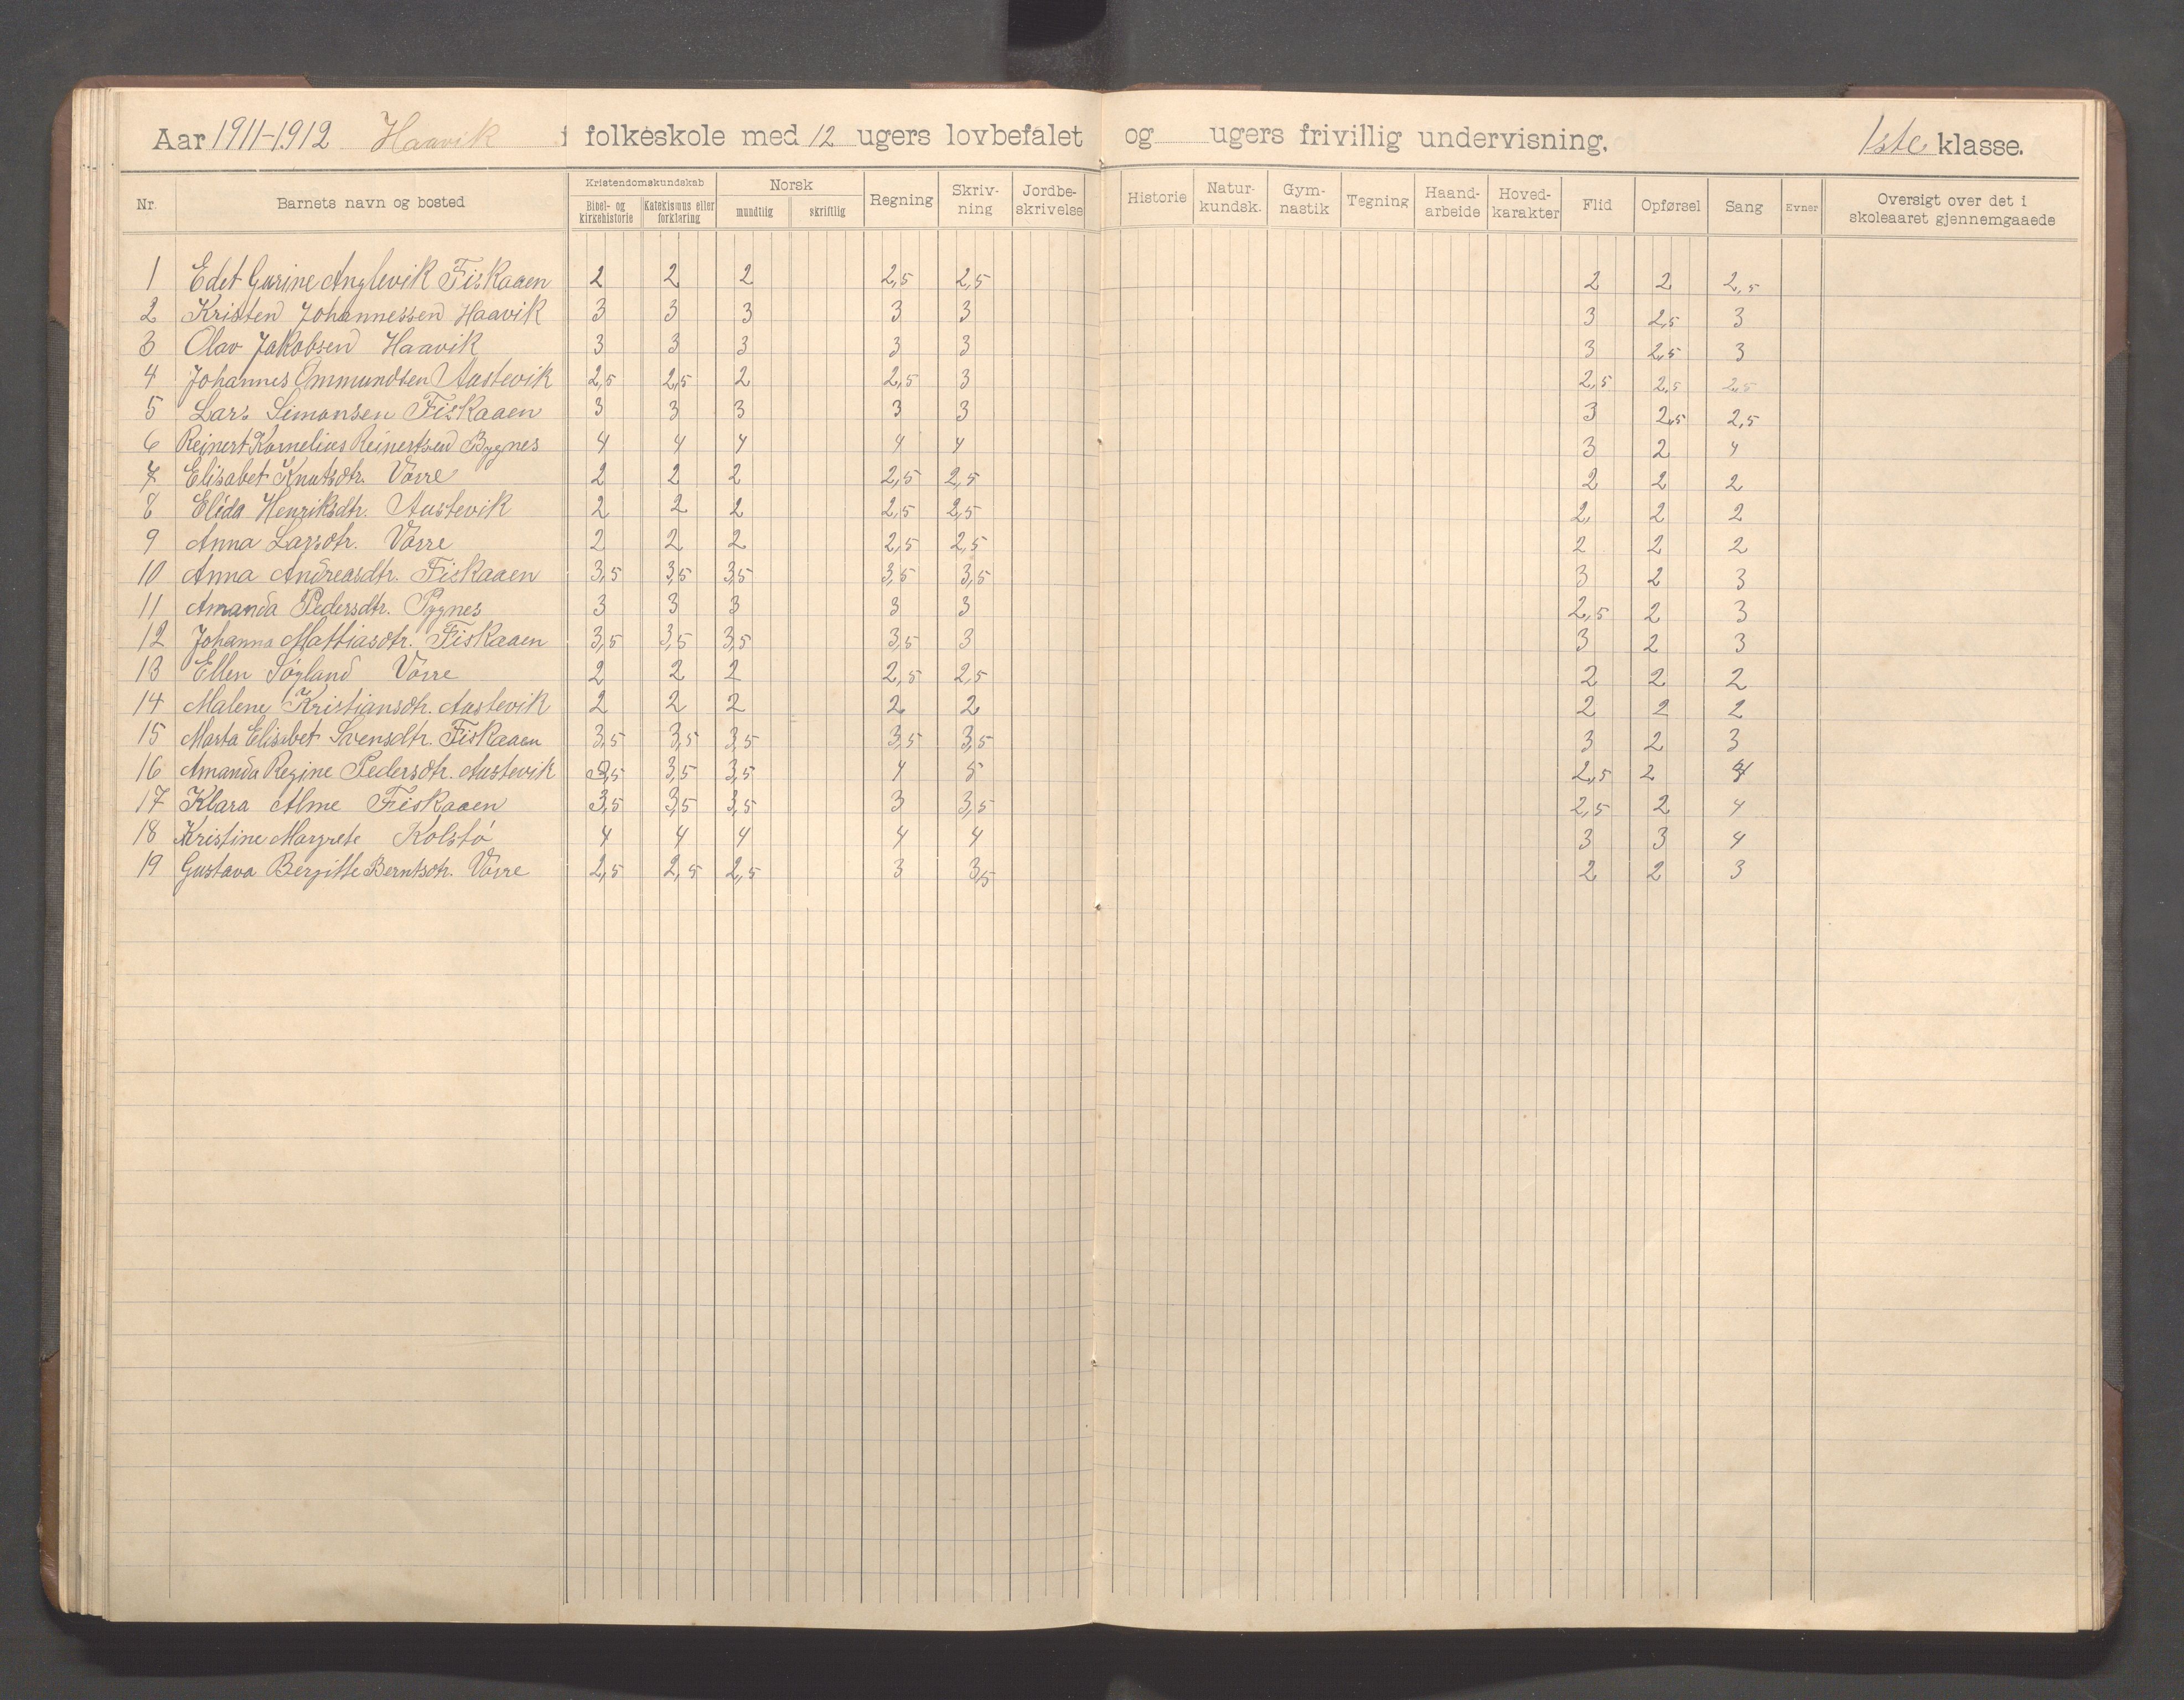 Aar 1911-1912 Haavik i folkeskole med 12 ugers lovbefalet og ugers frivillig undervisning. 1ste klasse.
Nr. Barnets navn og bosted Kristendomskundskab Bibel- og kirkehistorie Katekismus eller forklaring Norsk mundtlig skriftlig Regning Skriv-ning Jordbe-skrivelse Historie Natur-kundsk. Gym-nastik Tegning Haand-arbeide Hoved-karakter Flid Opførsel Sang Evner Oversigt over det i skoleaaret gjennemgaaede
1 Edet Gurine Anglevik Fiskaaen 2 2 2 2,5 2,5 2 2 2,5
2 Kristen Johannessen Haavik 3 3 3 3 3 3 2,5 3
3 Olav Jakobsen Haavik 3 3 3 3 3 3 2,5 3
4 Johannes Ommundsen Austevik 2,5 2,5 2 2,5 3 2,5 2,5 2,5
5 Lars Simonsen Fiskaaen 3 3 3 3 3 3 2,5 2,5
6 Reinert Kornelius Reinertsen Bygnes 4 4 4 4 4 3 2 4
7 Elisabet Knutsdtr. Vorre 2 2 2 2,5 2,5 2 2 2
8 Elida Henriksdtr. Austevik 2 2 2 2,5 2,5 2, 2 2
9 Anna Larsdtr. Vorre 2 2 2 2,5 2,5 2 2 2
10 Anna Andreasdtr. Fiskaaen 3,5 3,5 3,5 3,5 3,5 3 2 3
11 Amanda Pedersdtr. Pygnes 3 3 3 3 3 2,5 2 3
12 Johanna Mattiasdtr. Fiskaaen 3,5 3,5 3,5 3,5 3 3 2 3
13 Ellen Søgland Vorre 2 2 2 2,5 2,5 2 2 2
14 Malene Kristiansdtr. Austevik 2 2 2 2 2 2 2 2
15 Marta Elisabet Svensdtr. Fiskaaen 3,5 3,5 3,5 3,5 3,5 3 2 3
16 Amanda Regine Pedersdtr. Austevik 3,5 3,5 3,5 4 5 2,5 2 4
17 Klara Alme Fiskaaen 3,5 3,5 3,5 3 3,5 2,5 2 4
18 Kristine Margrete Kolstø 4 4 4 4 4 3 3 4
19 Gustava Bergitte Berntsdtr. Vorre 2,5 2,5 2,5 3 3,5 2 2 3